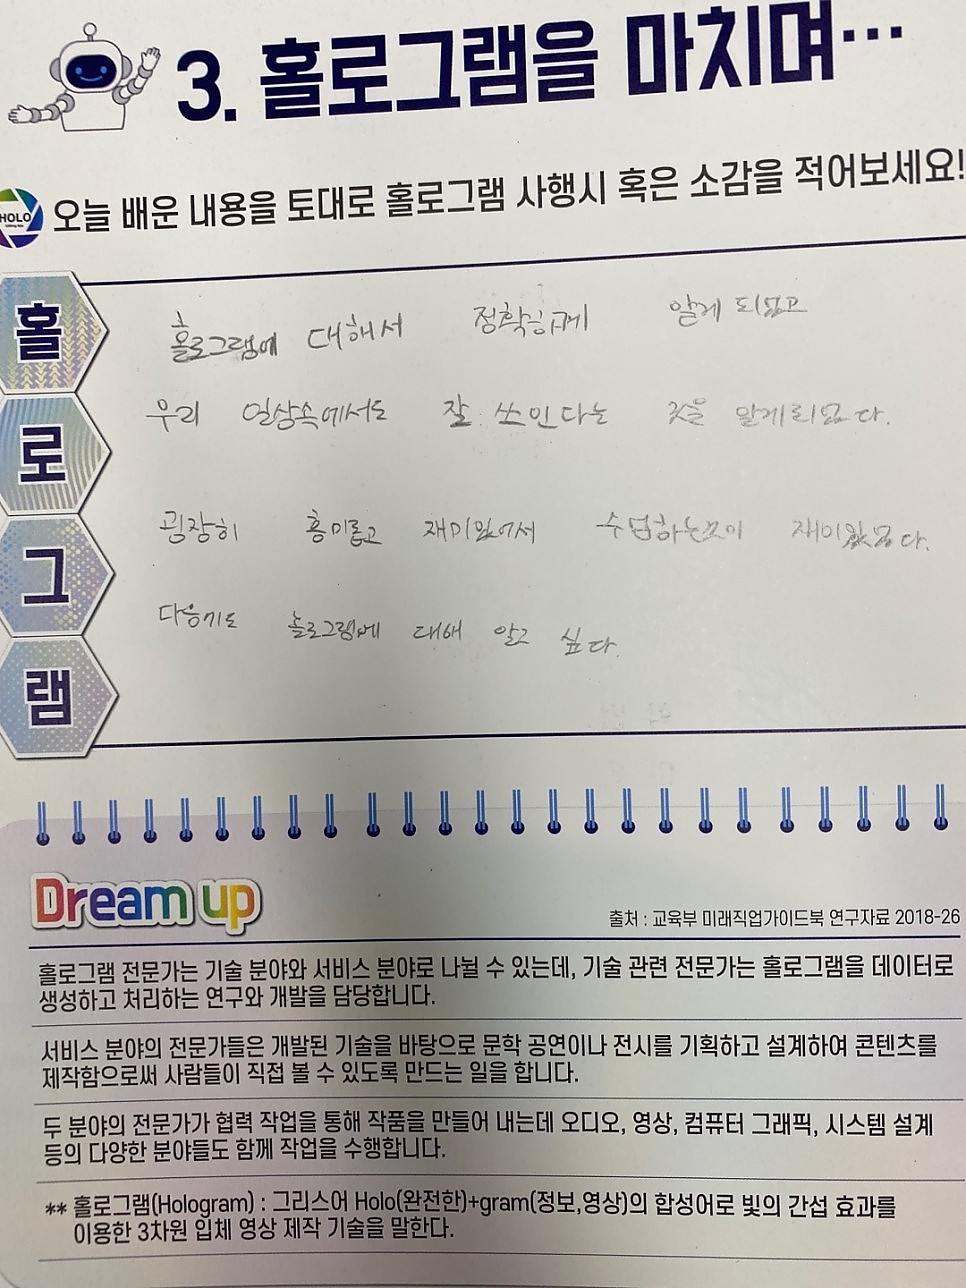 3. 홀로그램을 마치며…
HOLO
오늘 배운 내용을 토대로 홀로그램 사행시 혹은 소감을 적어보세요!
홀
홀로그램에 대해서 정확하게 알게 되었고
로
우리 일상속에서도 잘 쓰인다는 것을 알게되었다.
그
굉장히 흥미롭고 재미있어서 수업하는것이 재미있었다.
램
다음기도 홀로그램에 대해 알고 싶다.
Dream up
출처 : 교육부 미래직업가이드북 연구자료 2018-26
홀로그램 전문가는 기술 분야와 서비스 분야로 나뉠 수 있는데, 기술 관련 전문가는 홀로그램을 데이터로
생성하고 처리하는 연구와 개발을 담당합니다.
서비스 분야의 전문가들은 개발된 기술을 바탕으로 문학 공연이나 전시를 기획하고 설계하여 콘텐츠를
제작함으로써 사람들이 직접 볼 수 있도록 만드는 일을 합니다.
두 분야의 전문가가 협력 작업을 통해 작품을 만들어 내는데 오디오, 영상, 컴퓨터 그래픽, 시스템 설계
등의 다양한 분야들도 함께 작업을 수행합니다.
** 홀로그램(Hologram) : 그리스어 Holo(완전한)+gram(정보,영상)의 합성어로 빛의 간섭 효과를
이용한 3차원 입체 영상 제작 기술을 말한다.